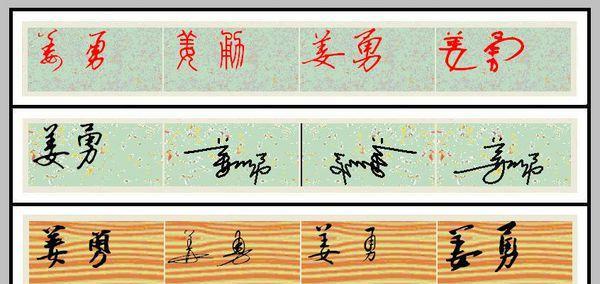 姜勇 姜勈 姜勇 姜勇
姜勇 姜勇 姜勇
姜勇 姜勇 姜勇 姜勇